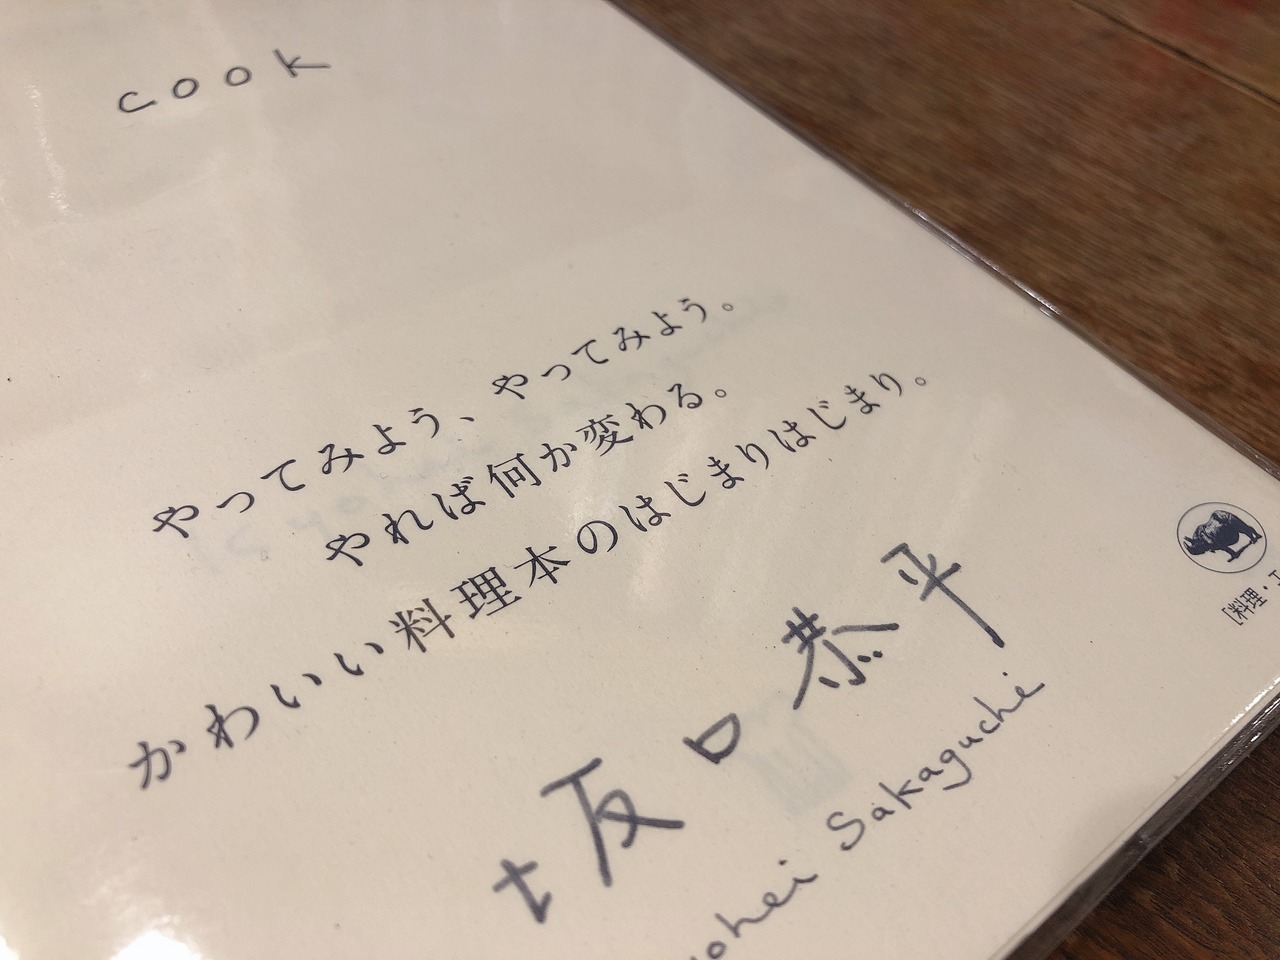 cook
やってみよう、やってみよう。
やれば何か変わる。
かわいい料理本のはじまりはじまり。
坂口恭平
Sakaguchi
[料理・